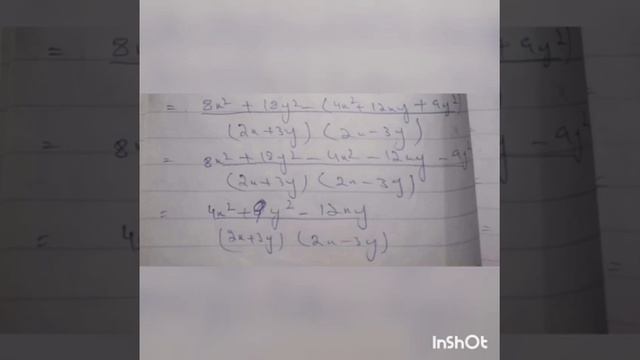 = 8x² + 18y² - (4x² + 12xy + 9y²)
(2x+3y) (2x-3y)
= 8x² + 18y² - 4x² - 12xy - 9y²
(2x+3y) (2x-3y)
= 4x² + 9y² - 12xy
(2x+3y) (2x-3y)
InShOt